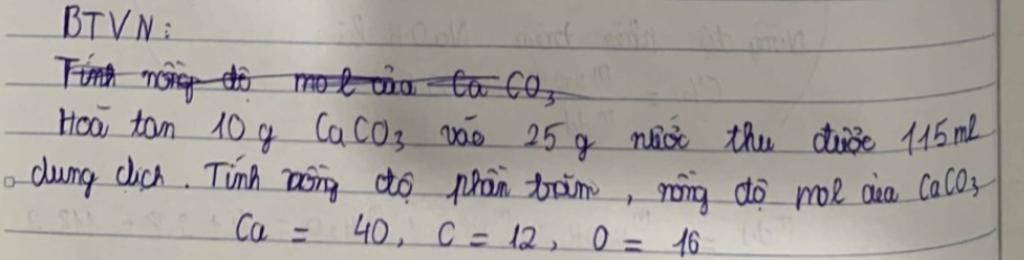 BTVN:
Tính nồng độ mol của CaCO₃
Hoà tan 10 g CaCO₃ vào 25 g nước thu được 115 ml
dung dịch. Tính nồng độ phần trăm, nồng độ mol của CaCO₃
Ca = 40, C = 12, O = 16